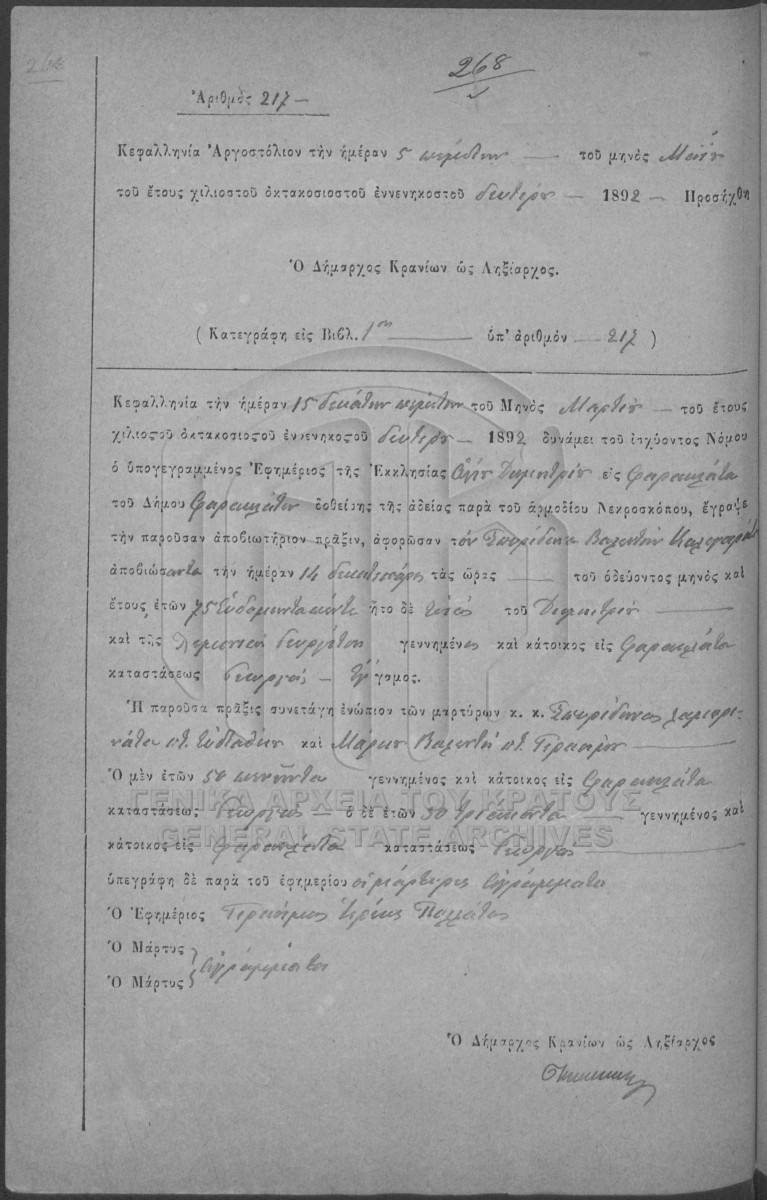 268
268
Ἀριθμὸς 217 –
Κεφαλληνία Ἀργοστόλιον τὴν ἡμέραν 5 πέμπτην — τοῦ μηνὸς Μαΐου
τοῦ ἔτους χιλιοστοῦ ὀκτακοσιοστοῦ ἐννενηκοστοῦ δευτέρου – 1892 – Προσήχθη
Ὁ Δήμαρχος Κρανίων ὡς Ληξίαρχος.
( Κατεγράφη εἰς Βιβλ. 1ον — ὑπ' ἀριθμὸν — 217 )
Κεφαλληνία τὴν ἡμέραν 15 δεκάτην πέμπτην τοῦ Μηνὸς Μαρτίου — τοῦ ἔτους
χιλιοςοῦ ὀκτακοσιοςοῦ ἐννενηκοςοῦ δευτέρου – 1892 δυνάμει τοῦ ἰσχύοντος Νόμου
ὁ ὑπογεγραμμένος Ἐφημέριος τῆς Ἐκκλησίας Ἁγίου Δημητρίου εἰς Φαρακλάτα
τοῦ Δήμου Φαρακλάτων δοθείσης τῆς ἀδείας παρὰ τοῦ ἁρμοδίου Νεκροσκόπου, ἔγραψε
τὴν παροῦσαν ἀποβιωτήριον πρᾶξιν, ἀφορῶσαν τὸν Σπυρίδωνα Βαλεντὴν
ἀποβιώσαντα τὴν ἡμέραν 14 τὰς ὥρας — τοῦ ὁδεύοντος μηνὸς καὶ
ἔτους, ἐτῶν 75 ἑβδομήντα πέντε ἦτο δὲ υἱὸς τοῦ Δημητρίου —
καὶ τῆς γεννημένος καὶ κάτοικος εἰς Φαρακλάτα
καταστάσεως Γεωργὸς – Ἔγγαμος.
Ἡ παροῦσα πρᾶξις συνετάγη ἐνώπιον τῶν μαρτύρων κ. κ. Σπυρίδωνος
Εὐσταθίου καὶ Μάρκου Βαλεντῆ π. Γερασίμου —
Ὁ μὲν ἐτῶν 50 πενῆντα γεννημένος καὶ κάτοικος εἰς Φαρακλάτα
καταστάσεως Γεωργὸς – ὁ δὲ ἐτῶν 30 τριάκοντα — γεννημένος καὶ
κάτοικος εἰς Φαρακλάτα καταστάσεως Γεωργὸς —
ὑπεγράφη δὲ παρὰ τοῦ ἐφημερίου οἱ μάρτυρες ἀγράμματοι
Ὁ Ἐφημέριος Γεράσιμος Ἱερεὺς
Ὁ Μάρτυς
Ὁ Μάρτυς
ἀγράμματοι
Ὁ Δήμαρχος Κρανίων ὡς Ληξίαρχος
ΓΕΝΙΚΑ ΑΡΧΕΙΑ ΤΟΥ ΚΡΑΤΟΥΣ
GENERAL STATE ARCHIVES